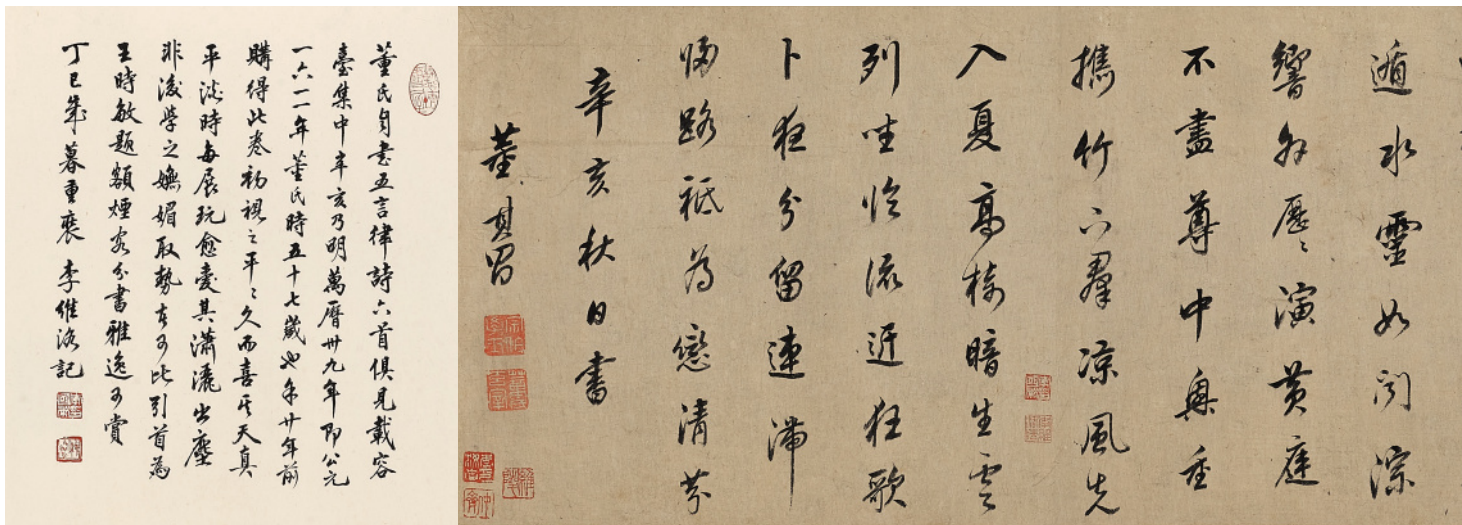 遁水靈如聞淙
響外歷〻演黄庭
不盡尊中興重
攜竹下羣凉風先
入夏高樹暗生雲
列坐臨流近狂歌
卜夜分留連滯
歸路祗為戀清芬
辛亥秋日書
董其昌
董氏自書五言律詩六首俱見載容
臺集中辛亥乃明萬曆卅九年即公元
一六一一年董氏時五十七歲也余廿年前
購得此卷初視之平〻久而喜其天真
平淡時每展玩愈愛其瀟灑出塵
非後學之嫵媚取勢者可比引首為
王時敏題額煙客分書雅逸可賞
丁巳歲暮重裝 李維洛記